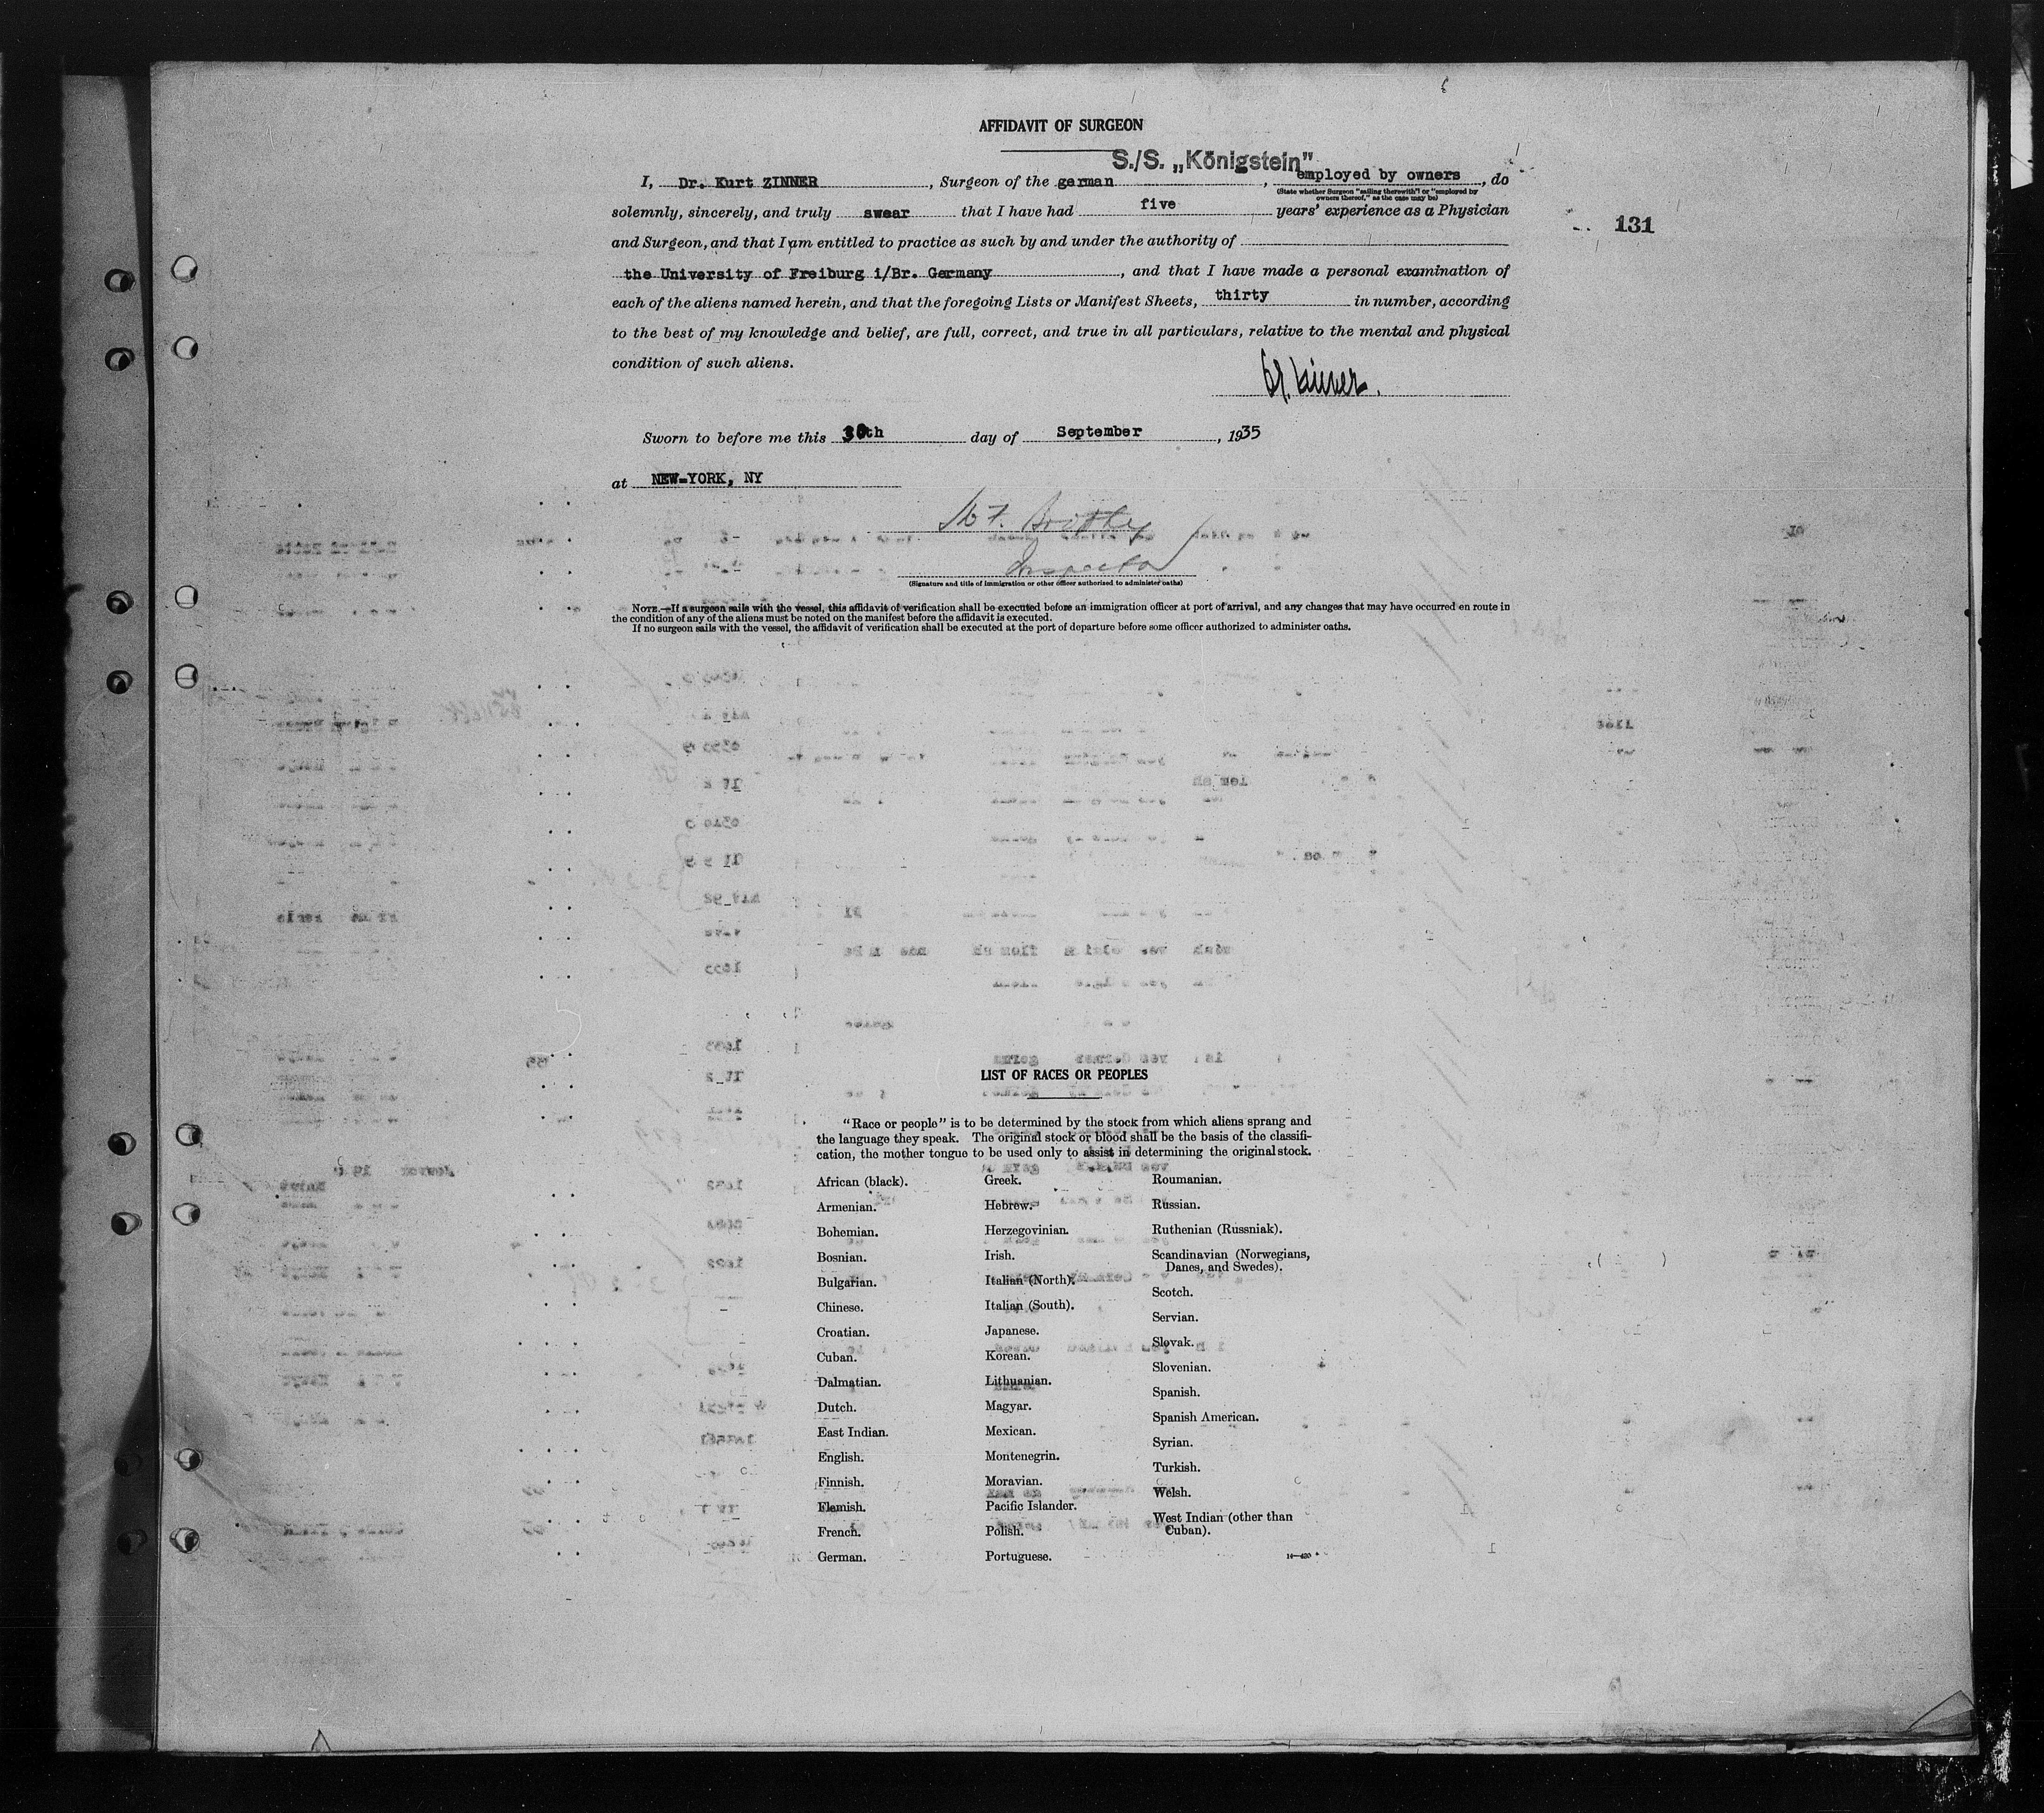 AFFIDAVIT OF SURGEON
S./S. „Königstein"
I, Dr. Kurt ZINNER, Surgeon of the german, employed by owners, do
(State whether Surgeon "sailing therewith" or "employed by
owners thereof," as the case may be)
solemnly, sincerely, and truly swear that I have had five years' experience as a Physician
131
and Surgeon, and that I am entitled to practice as such by and under the authority of
the University of Freiburg i/Br. Germany, and that I have made a personal examination of
each of the aliens named herein, and that the foregoing Lists or Manifest Sheets, thirty in number, according
to the best of my knowledge and belief, are full, correct, and true in all particulars, relative to the mental and physical
condition of such aliens.
Sworn to before me this 30th day of September, 1935
at NEW-YORK, NY
Inspector
(Signature and title of immigration or other officer authorized to administer oaths)
NOTE.—If a surgeon sails with the vessel, this affidavit of verification shall be executed before an immigration officer at port of arrival, and any changes that may have occurred en route in
the condition of any of the aliens must be noted on the manifest before the affidavit is executed.
If no surgeon sails with the vessel, the affidavit of verification shall be executed at the port of departure before some officer authorized to administer oaths.
LIST OF RACES OR PEOPLES
"Race or people" is to be determined by the stock from which aliens sprang and
the language they speak. The original stock or blood shall be the basis of the classifi-
cation, the mother tongue to be used only to assist in determining the original stock.
African (black).
Armenian.
Bohemian.
Bosnian.
Bulgarian.
Chinese.
Croatian.
Cuban.
Dalmatian.
Dutch.
East Indian.
English.
Finnish.
Flemish.
French.
German.
Greek.
Hebrew.
Herzegovinian.
Irish.
Italian (North).
Italian (South).
Japanese.
Korean.
Lithuanian.
Magyar.
Mexican.
Montenegrin.
Moravian.
Pacific Islander.
Polish.
Portuguese.
Roumanian.
Russian.
Ruthenian (Russniak).
Scandinavian (Norwegians,
Danes, and Swedes).
Scotch.
Servian.
Slovak.
Slovenian.
Spanish.
Spanish American.
Syrian.
Turkish.
Welsh.
West Indian (other than
Cuban).